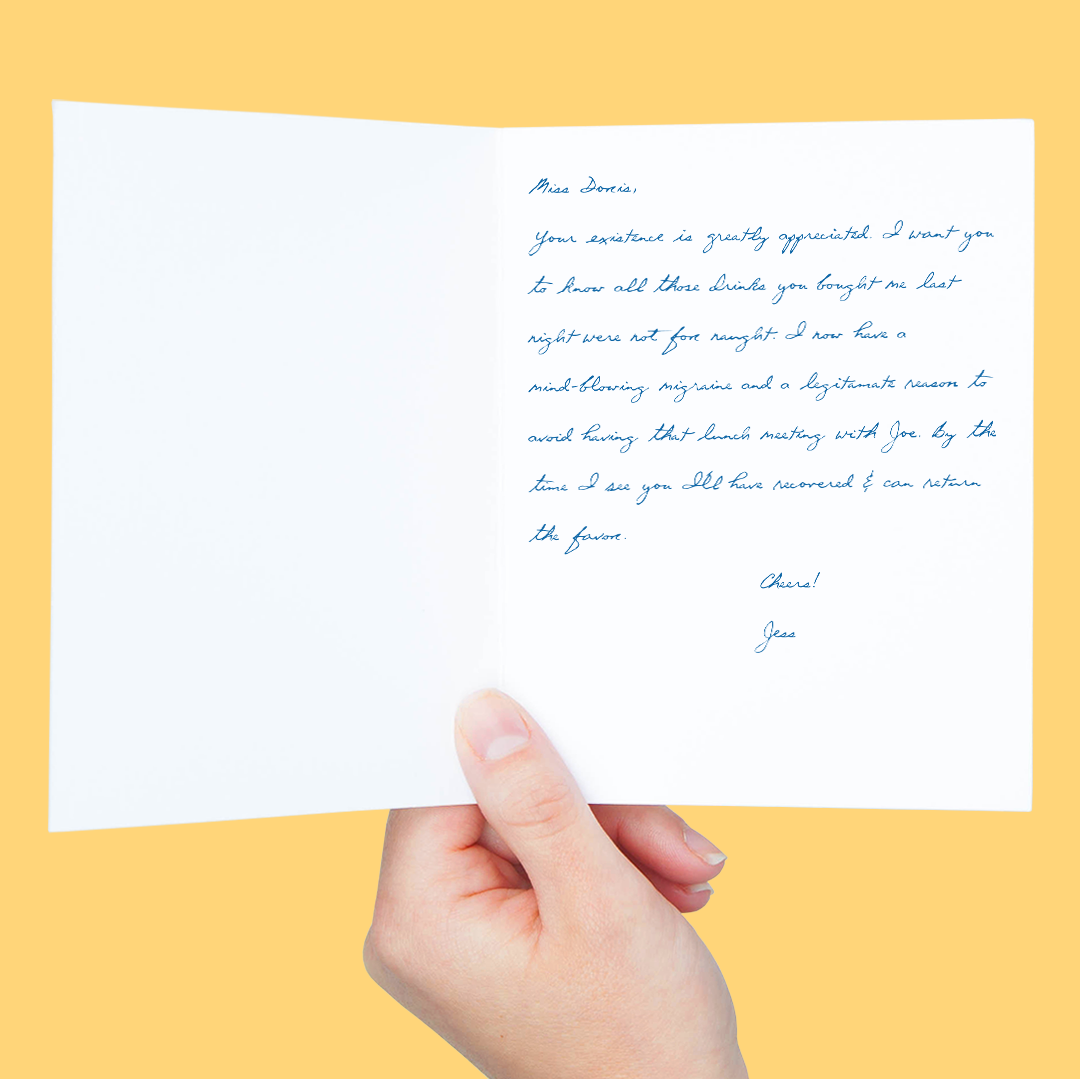 Miss Doreis,
Your existence is greatly appreciated. I want you
to know all those drinks you bought me last
night were not for naught. I now have a
mind-blowing migraine and a legitamate reason to
avoid having that lunch meeting with Joe. By the
time I see you I'll have recovered & can return
the favor.
Cheers!
Jess